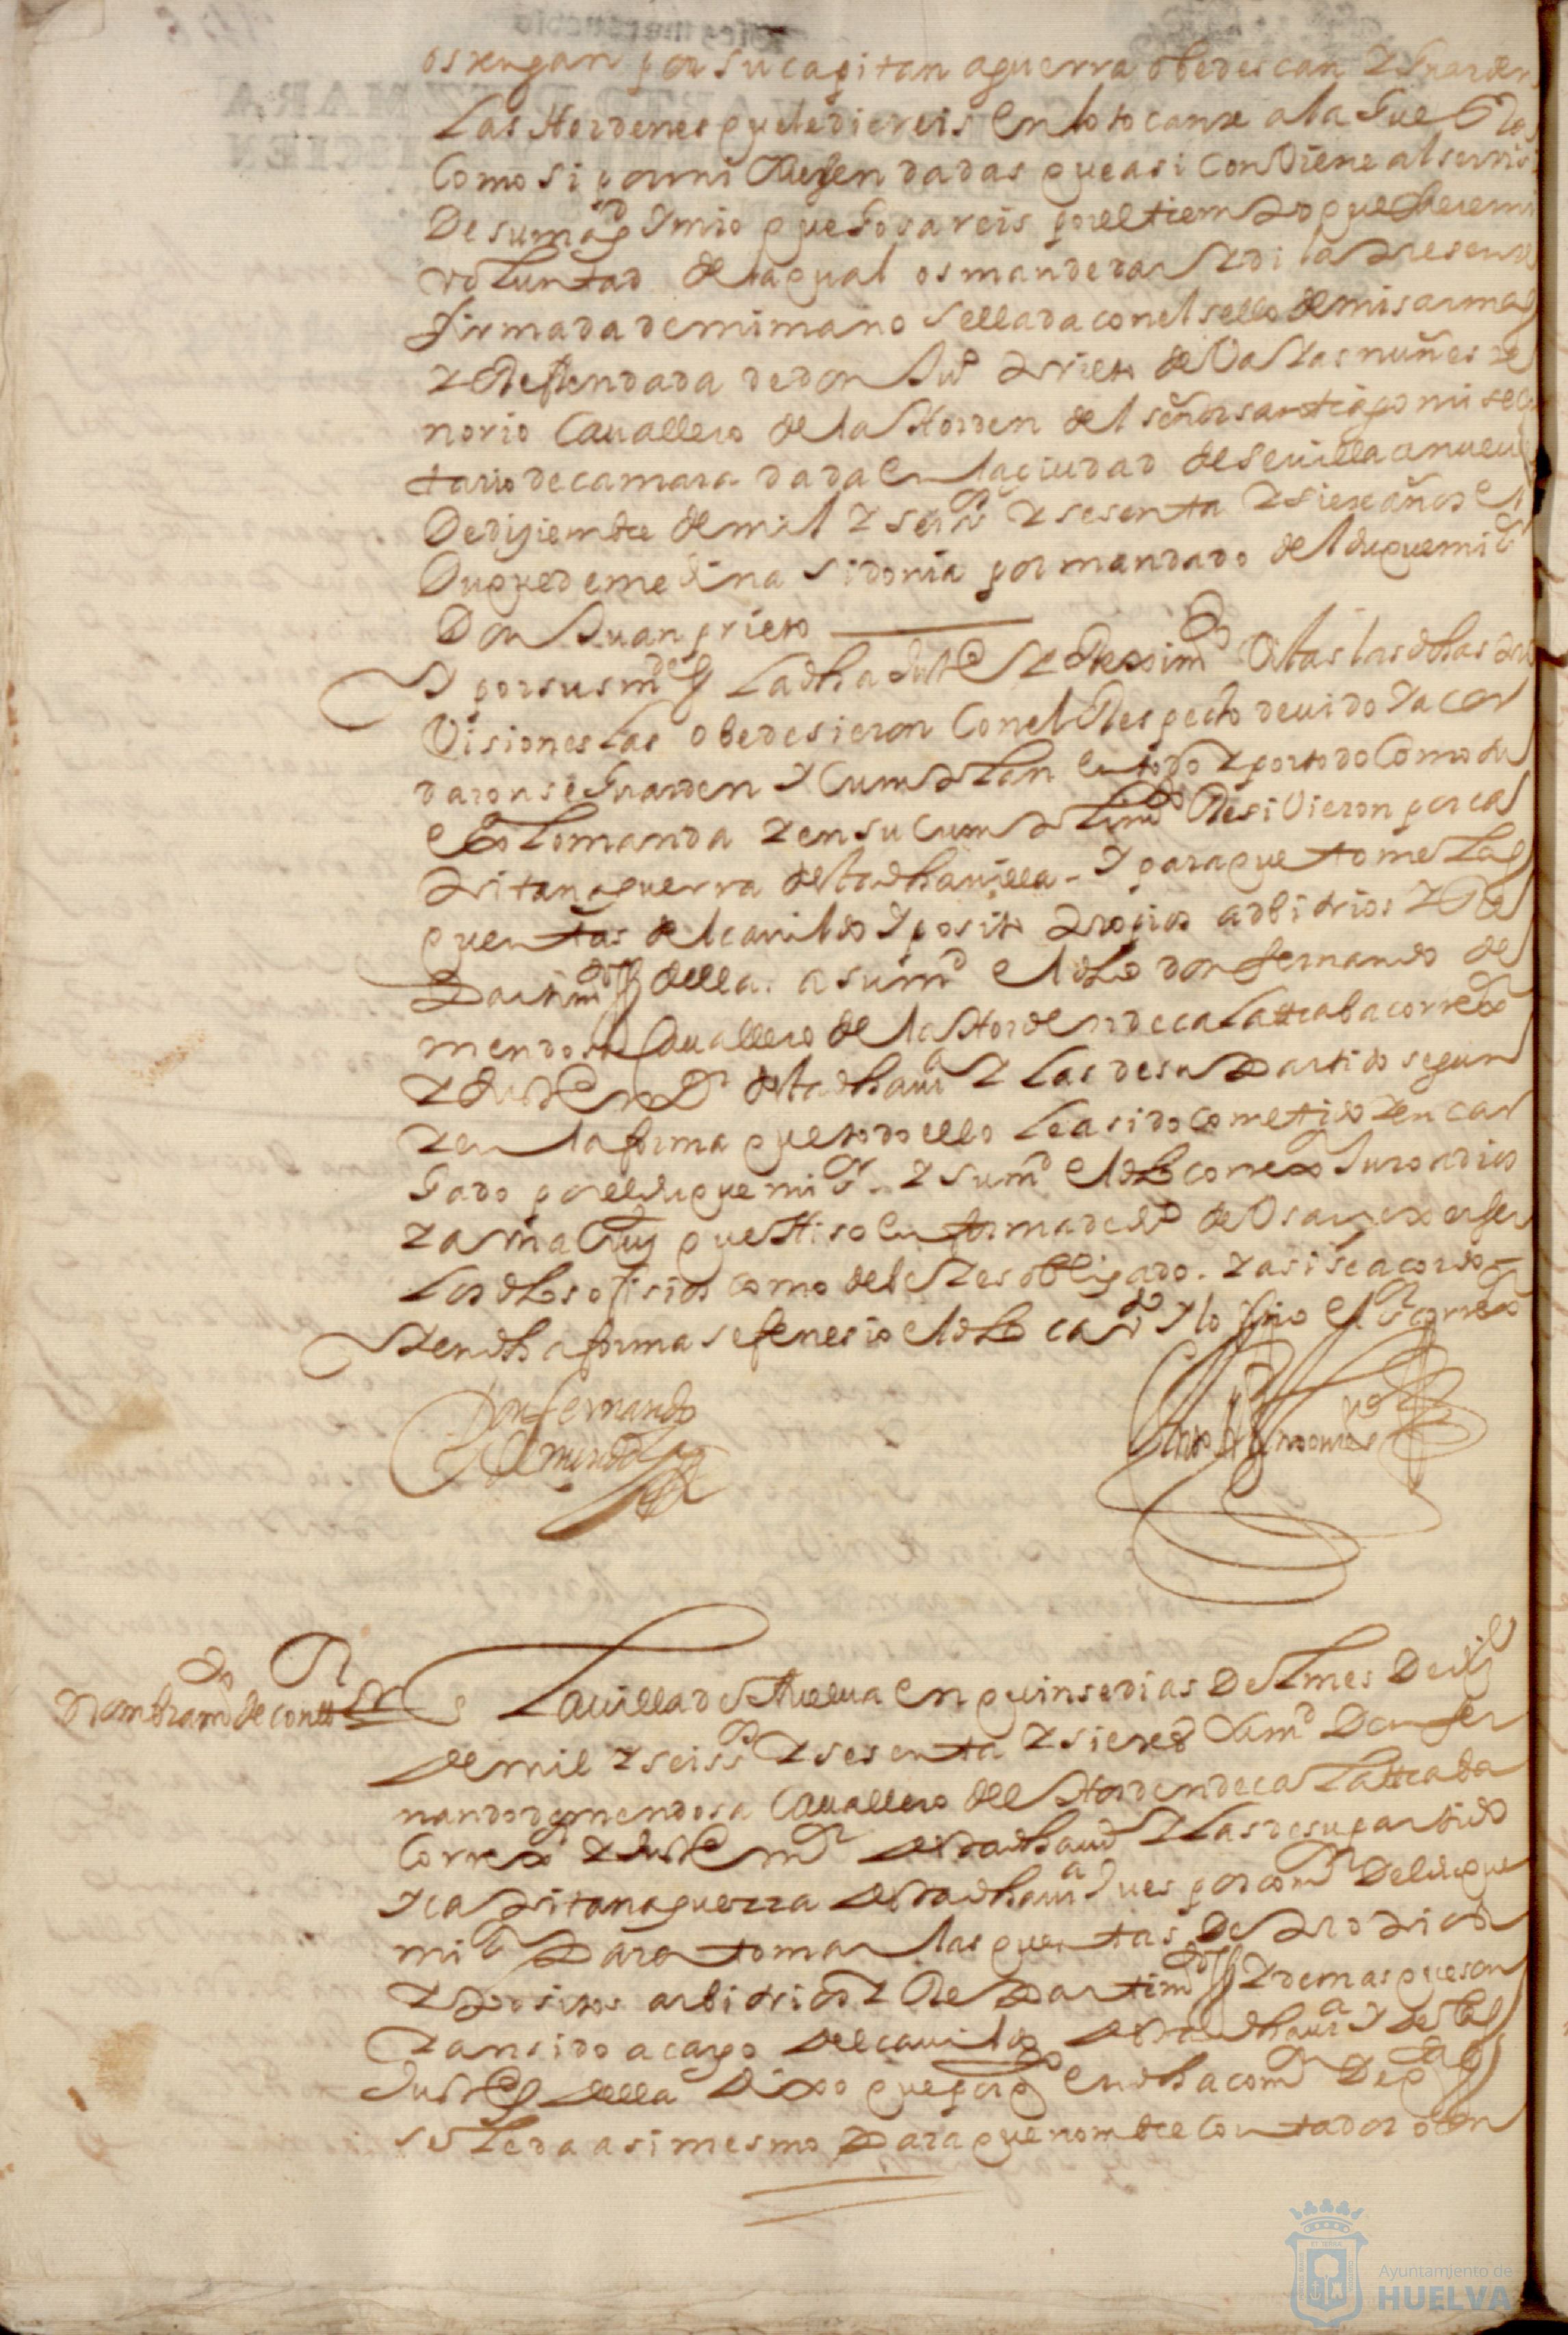 os tengan por su capitan a guerra obedescan y guarden
Las Hordenes que le diereis en lo tocante a la gue
Como si por mi fuesen dadas que asi conviene al servi
De su magd y mio que gosareis por el tiempo que fuere mi
voluntad de la qual os mande dar y di la presente
firmada de mi mano sellada con el sello de mis armas
y Refrendada de don Juº Prieto de Vallas nuñes te
norio Cauallero de la Horden del señor santiago mi secre
tario de camara dada en la ciudad de Seuilla a nueue
De disiembre de mil y seisºs y sesenta y siete años el
Duque de medina Sidonia por mandado del duque mi sr
Don Juan prieto
Y por sus mdes La dha Justª y Reximº Vistas las dhas pro
Visiones las obedesieron Con el Respecto deuido y acor
daron se Guarden y Cumplan en todo y por todo Como du
exª lo manda y en su Cumplimtº Resivieron por ca
pitan a guerra desta dha villa - y para que tome las
quentas del cauildo y posito propios adbitrios y Re
partimtºs della. a su md el dho don fernando de
mendosa Cauallero de la Horden de calattraba correxr
y Justª mr desta dha vª y las de su Partido segun
y en la forma que todo ello le a sido cometido y encar
gado por el duque mi sr. y su md el dho correxr Juro a dios
y a una Cruz que Hiso en forma de drº de Usar y exerser
Los dhos ofisios como deve y es obligado. y asi se acordo
y en dha forma se fenesio el dho cavdº y lo firmo el sr correxr
Don fernando
de mendosa
Nombramtº de conttor
En La uilla de Huelua en quinse dias Del mes De disº
de mil y seisºs y sesenta y siete aº Su md Don fer
nando de mendosa Cauallero del Horden de calattraba
Correxr y Justª mr desta dha vª y las de su partido
y capitan a guerra desta dha villa Jues por comon Del duque
mi sr Para tomar las quentas De propios
y positos arbitrios y Repartimtºs y demas que son
y an sido a cargo Del cauildo desta dha vª y de las
Justªs della Dixo que por qtº en dha comon De
se le da asimesmo para que nombre Contador o en
Ayuntamiento de
HUELVA